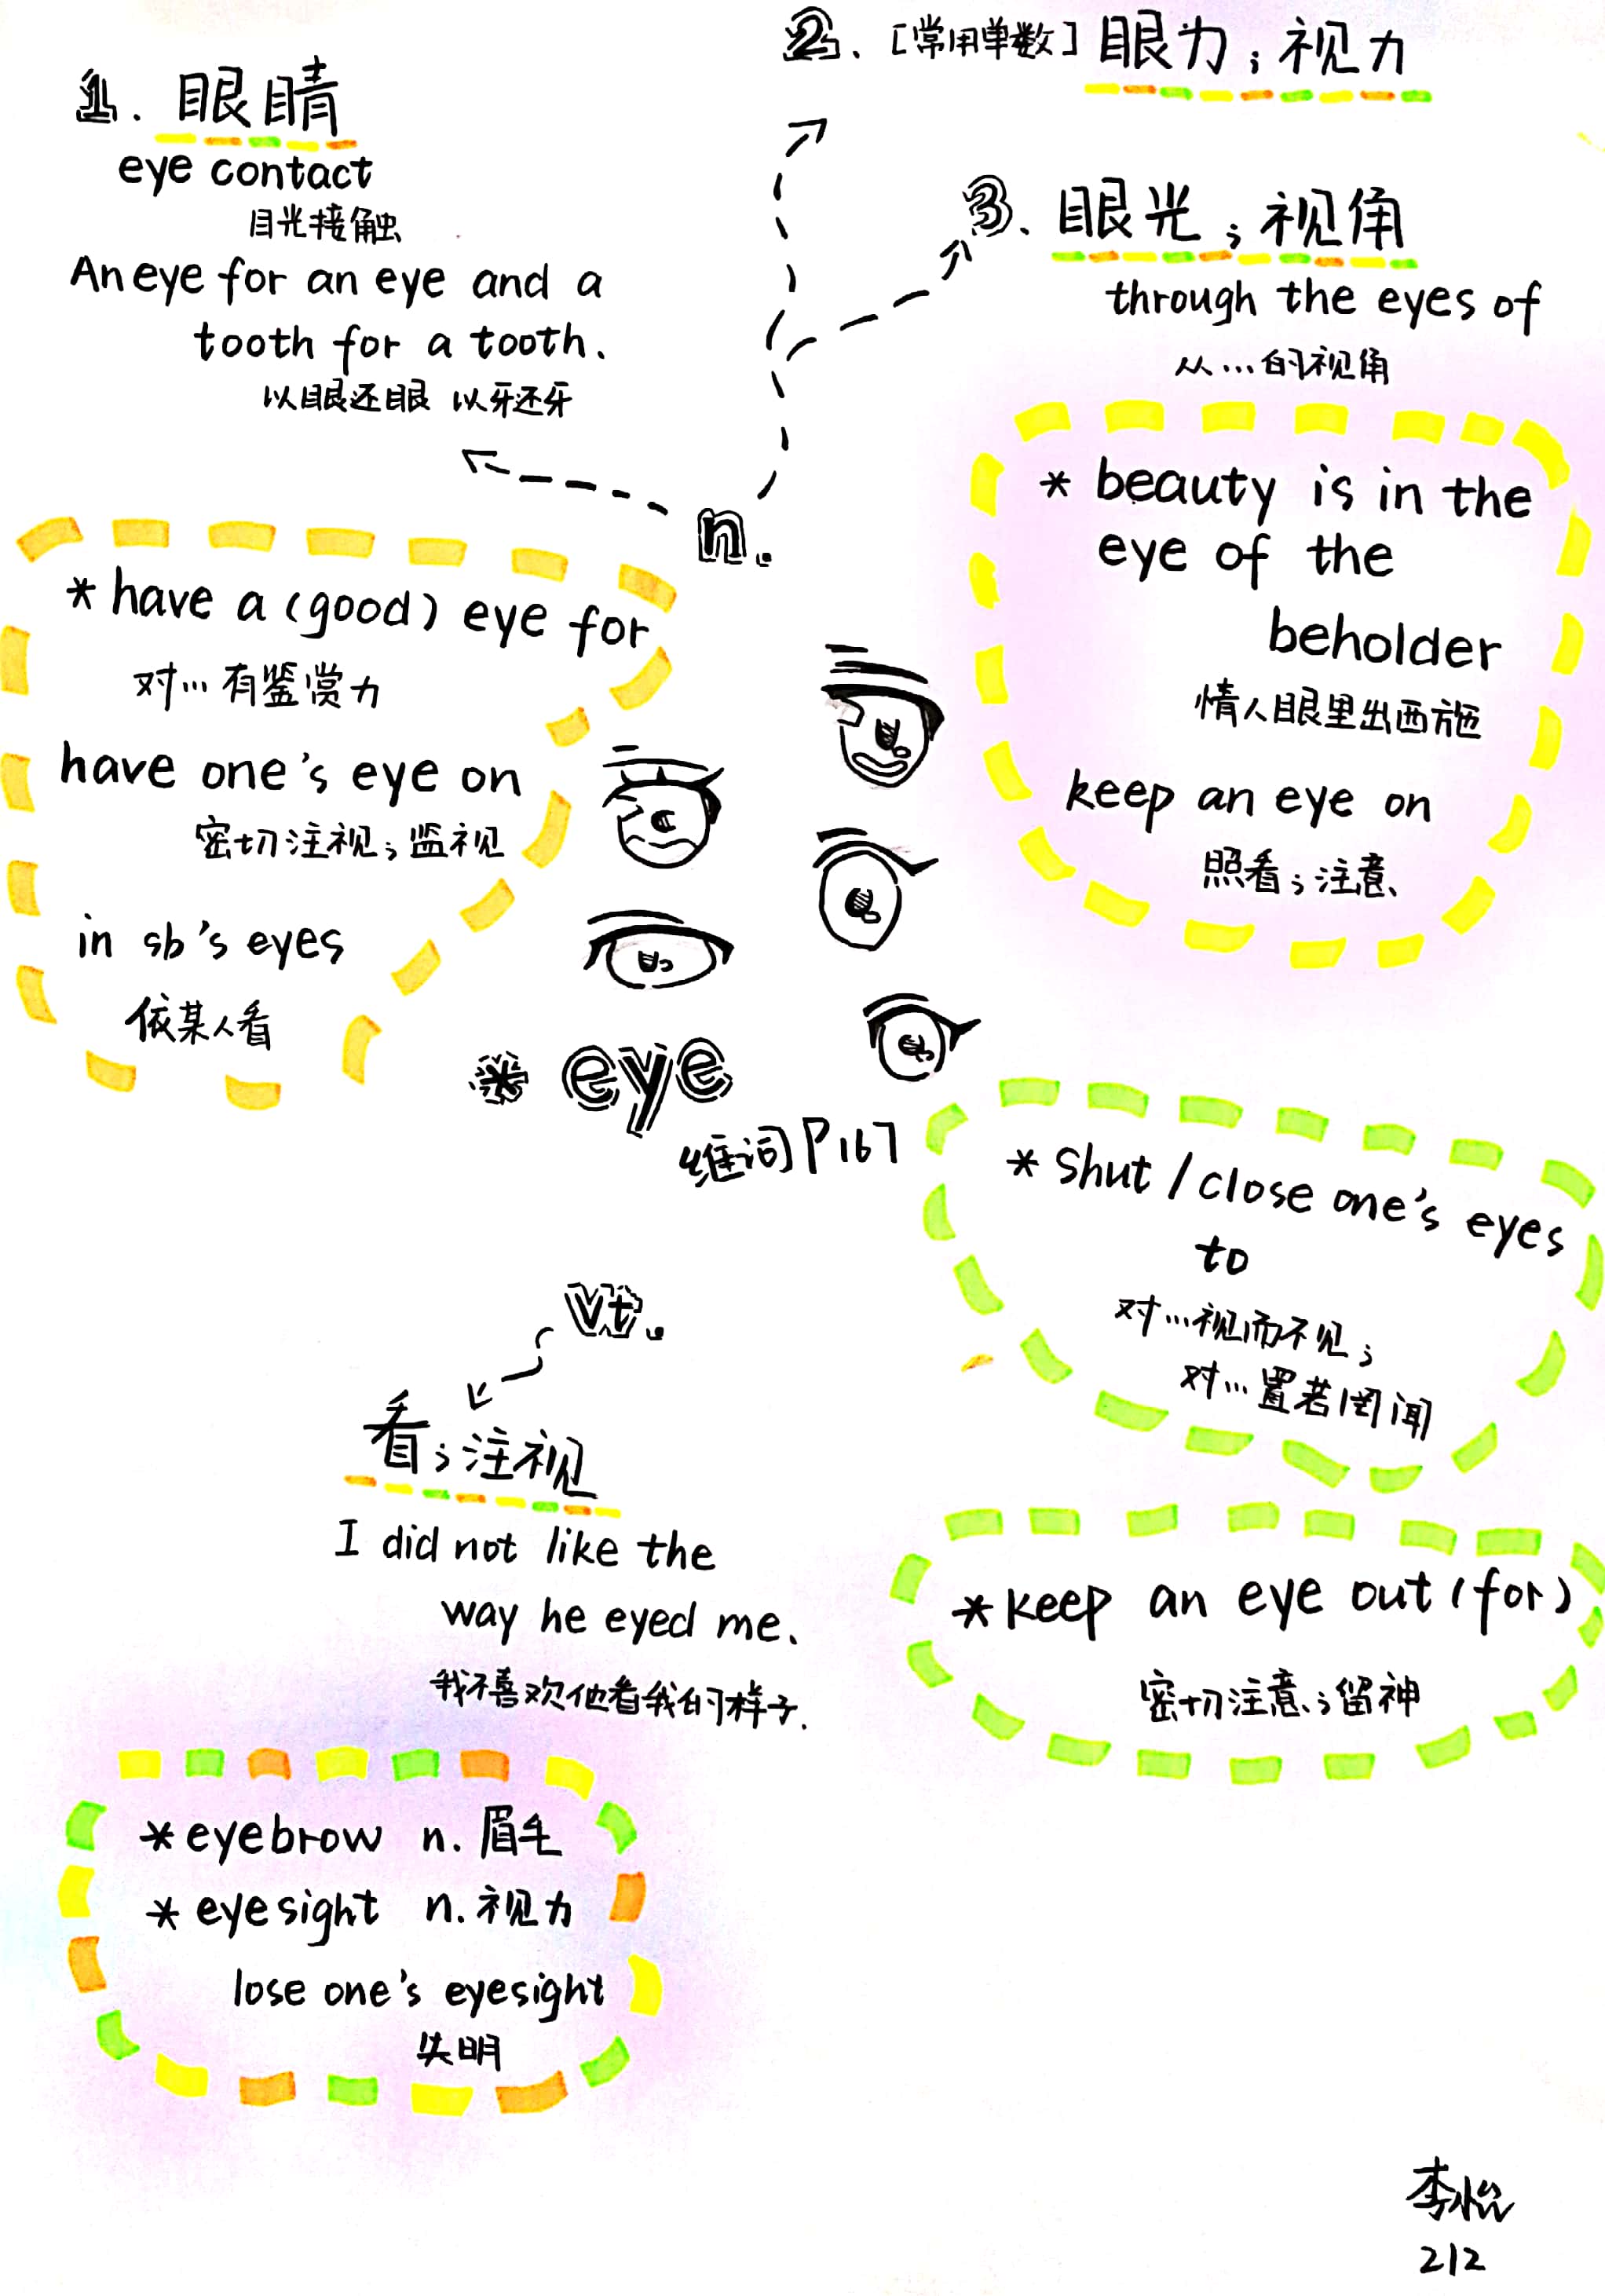 1. 眼睛
eye contact
目光接触
An eye for an eye and a
tooth for a tooth.
以眼还眼 以牙还牙
2. [常用单数] 眼力；视力
3. 眼光；视角
through the eyes of
从…的视角
n.
* have a (good) eye for
对…有鉴赏力
have one's eye on
密切注视；监视
in sb's eyes
依某人看
* beauty is in the
eye of the
beholder
情人眼里出西施
keep an eye on
照看；注意
* eye
维词P167
* shut / close one's eyes
to
对…视而不见；
对…置若罔闻
vt.
看；注视
I did not like the
way he eyed me.
我不喜欢他看我的样子.
* keep an eye out (for)
密切注意；留神
* eyebrow n. 眉毛
* eyesight n. 视力
lose one's eyesight
失明
李怡
212